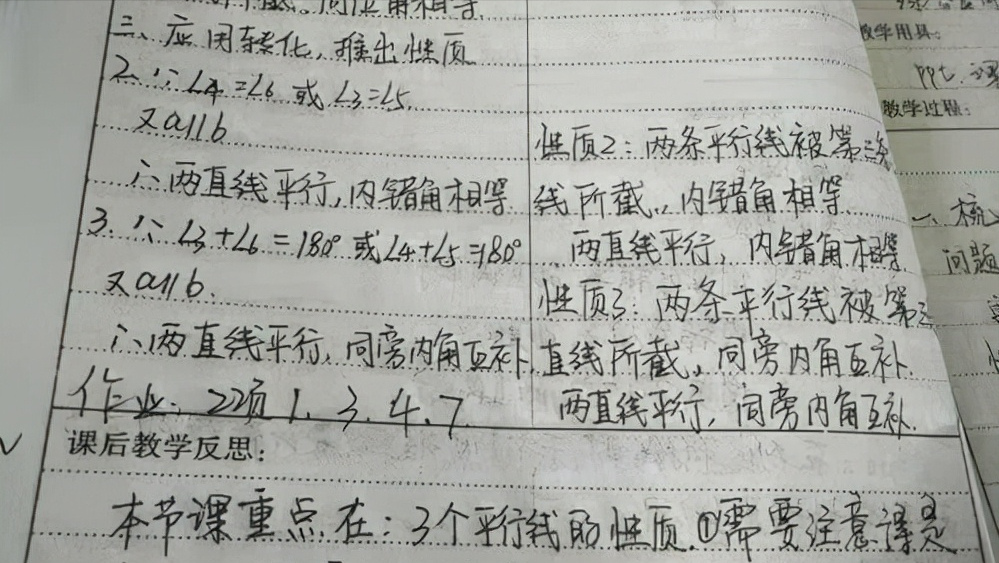 同位角相等.
三、应用转化,推出性质
2. ∵ ∠4=∠6 或 ∠3=∠5.
又a∥b
∴ 两直线平行,内错角相等
3. ∵ ∠3+∠6=180° 或∠4+∠5=180°
又a∥b.
∴ 两直线平行,同旁内角互补
作业: 22页 1. 3. 4. 7
性质2:两条平行线被第三条
线所截,内错角相等
两直线平行,内错角相等
性质3:两条平行线被第三
直线所截,同旁内角互补.
两直线平行,同旁内角互补.
课后教学反思:
本节课重点在:3个平行线的性质.①需要注意课是
教学用具:
PPt.
教学过程:
一、梳
问题